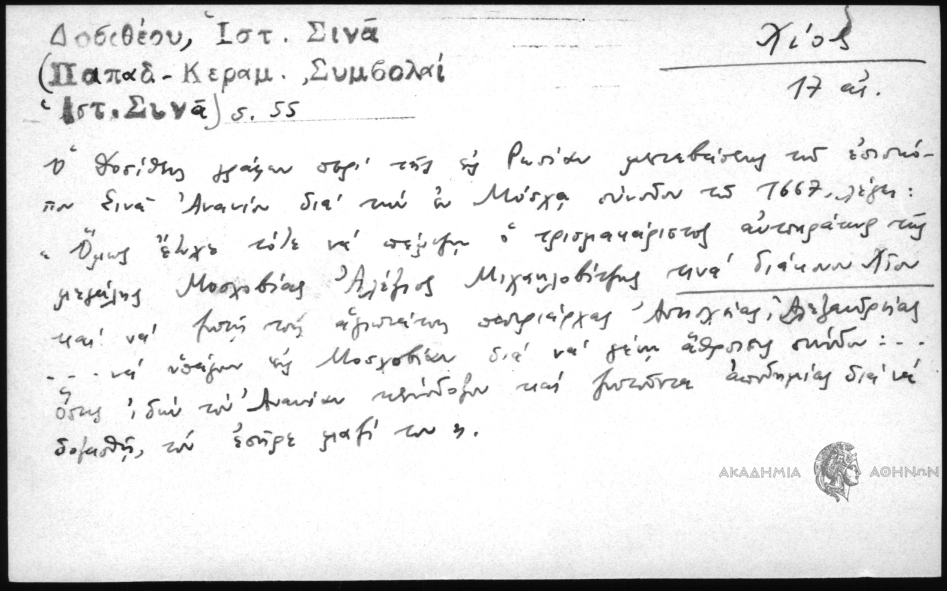 Δοσιθέου, Ἱστ. Σινᾶ
(Παπαδ-Κεραμ. Συμβολαί
Ἱστ. Σινᾶ) σ. 55
Χίος
17 αἰ.
Ὁ Δοσίθεος γράφων περί τῆς εἰς Ρωσίαν μεταβάσεως τοῦ ἐπισκό-
που Σινᾶ Ἀνανίου διά τήν ἐν Μόσχᾳ σύνοδον τοῦ 1667, λέγει:
« Ὅμως ἔτυχε τότε νά πέμψῃ ὁ τρισμακάριστος αὐτοκράτωρ τῆς
μεγάλης Μοσχοβίας Ἀλέξιος Μιχαηλοβίτζης τινά διάκονον Χῖον
καί νά ζητῇ τούς ἁγιωτάτους πατριάρχας Ἀντιοχείας, Ἀλεξανδρείας
... νά ὑπάγουν εἰς Μοσχοβίαν διά νά γένῃ ἄθροισις συνόδου: ...
ὅστις ἰδών τόν Ἀνανίαν κενόδοξον καί ζητοῦντα ἀποδημίας διά νά
δοξασθῇ, τόν ἐπῆρε μαζί του ».
ΑΚΑΔΗΜΙΑ ΑΘΗΝΩΝ